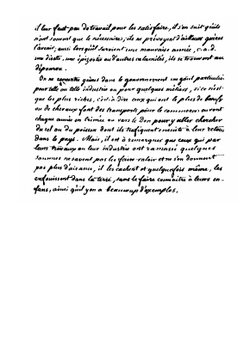 il leur faut peu de travail pour les satisfaire, il s'en suit qu'ils
n'ont souvent que le nécessaire; ils ne prévoyent d'ailleurs guères
l'avenir; aussi lorsqu'il survient une mauvaise année, c. a. d.
une disette, une épizootie ou d'autres calamités, ils se trouvent au
dépourvu.
On ne rencontre guères dans le gouvernement un goût particulier
pour telle ou telle industrie ou pour quelques métiers, si ce n'est
que les plus riches, c'est à dire ceux qui ont le plus de boeufs
ou de chevaux font des transports pour le commerce; ou vont
chaque année en Crimée ou vers le Don pour y aller chercher
du sel ou du poisson dont ils trafiquent ensuite à leur retour
dans le pays. Mais, il est à remarquer que ceux qui par
leurs travaux ou leur industrie ont ramassé quelques
sommes ne savent pas les faire valoir et ne s'en donnent
pas plus d'aisance, il les cachent et quelquefois même, les
enfouissent dans la terre, sans le faire connaître à leurs en-
fans, ainsi qu'il y en a beaucoup d'exemples.